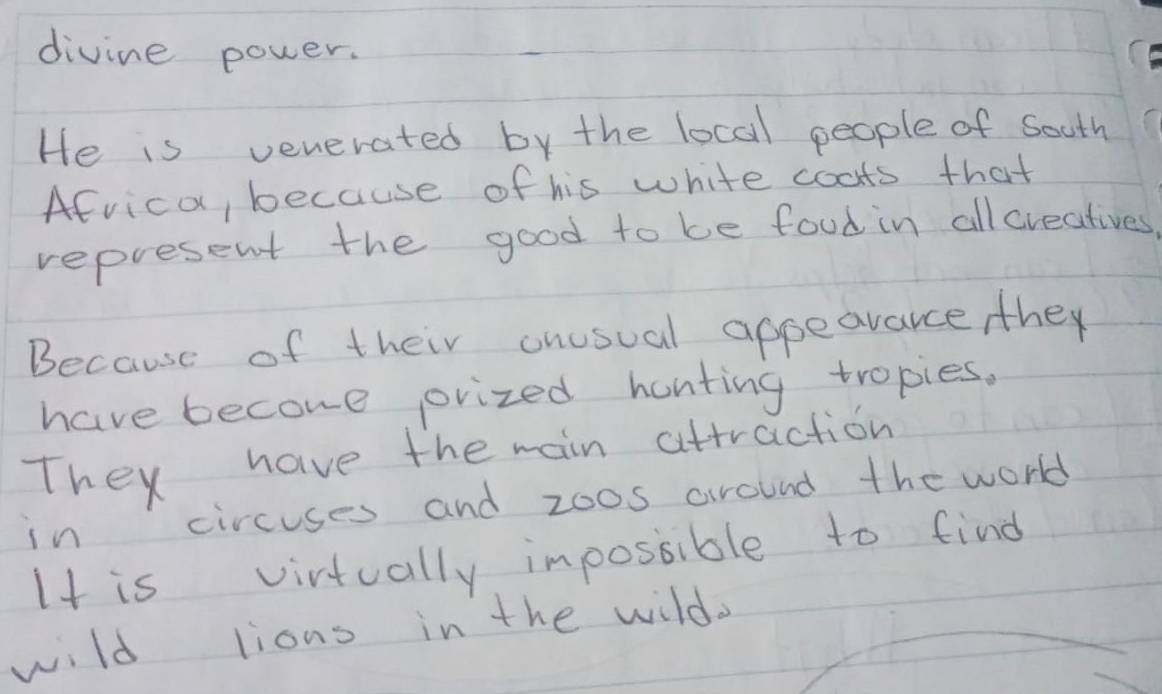 divine power.
He is venerated by the local people of South
Africa, because of his white coats that
represent the good to be foud in all creatives.
Because of their unusual appearance, they
have become prized hunting tropies.
They have the main attractión
in circuses and zoos around the world
It is virtually impossible to find
wild lions in the wild.